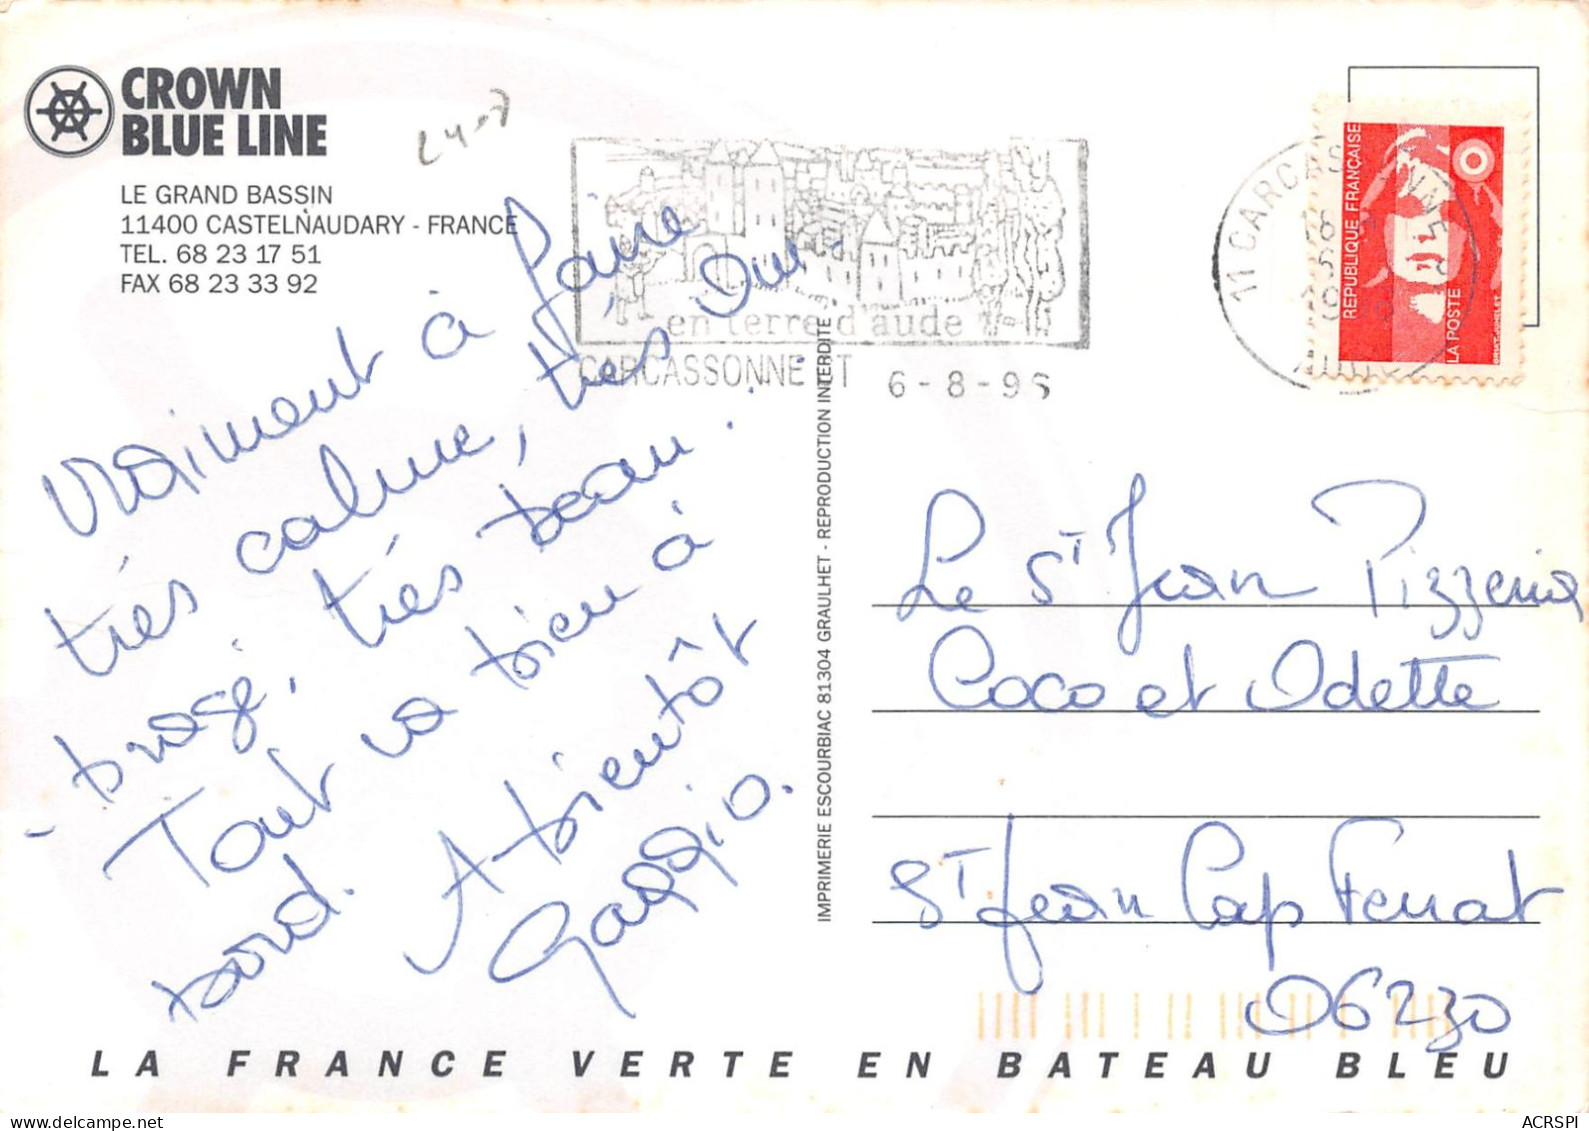 CROWN
BLUE LINE
LE GRAND BASSIN
11400 CASTELNAUDARY - FRANCE
TEL. 68 23 17 51
FAX 68 23 33 92
Vraiment à faire,
très calme, très Om-
bragé, très beau.
Tout va bien à
bord.
A bientôt
en terre d'aude
CARCASSONNE
6-8-96
11 CARCASSONNE
AUDE
REPUBLIQUE FRANÇAISE
LA POSTE
IMPRIMERIE ESCOURBIAC 81304 GRAULHET - REPRODUCTION INTERDITE
Le St Jean Pizzeria
Coco et Odette
St Jean Cap Ferrat
06230
LA FRANCE VERTE EN BATEAU BLEU
ACRSPI